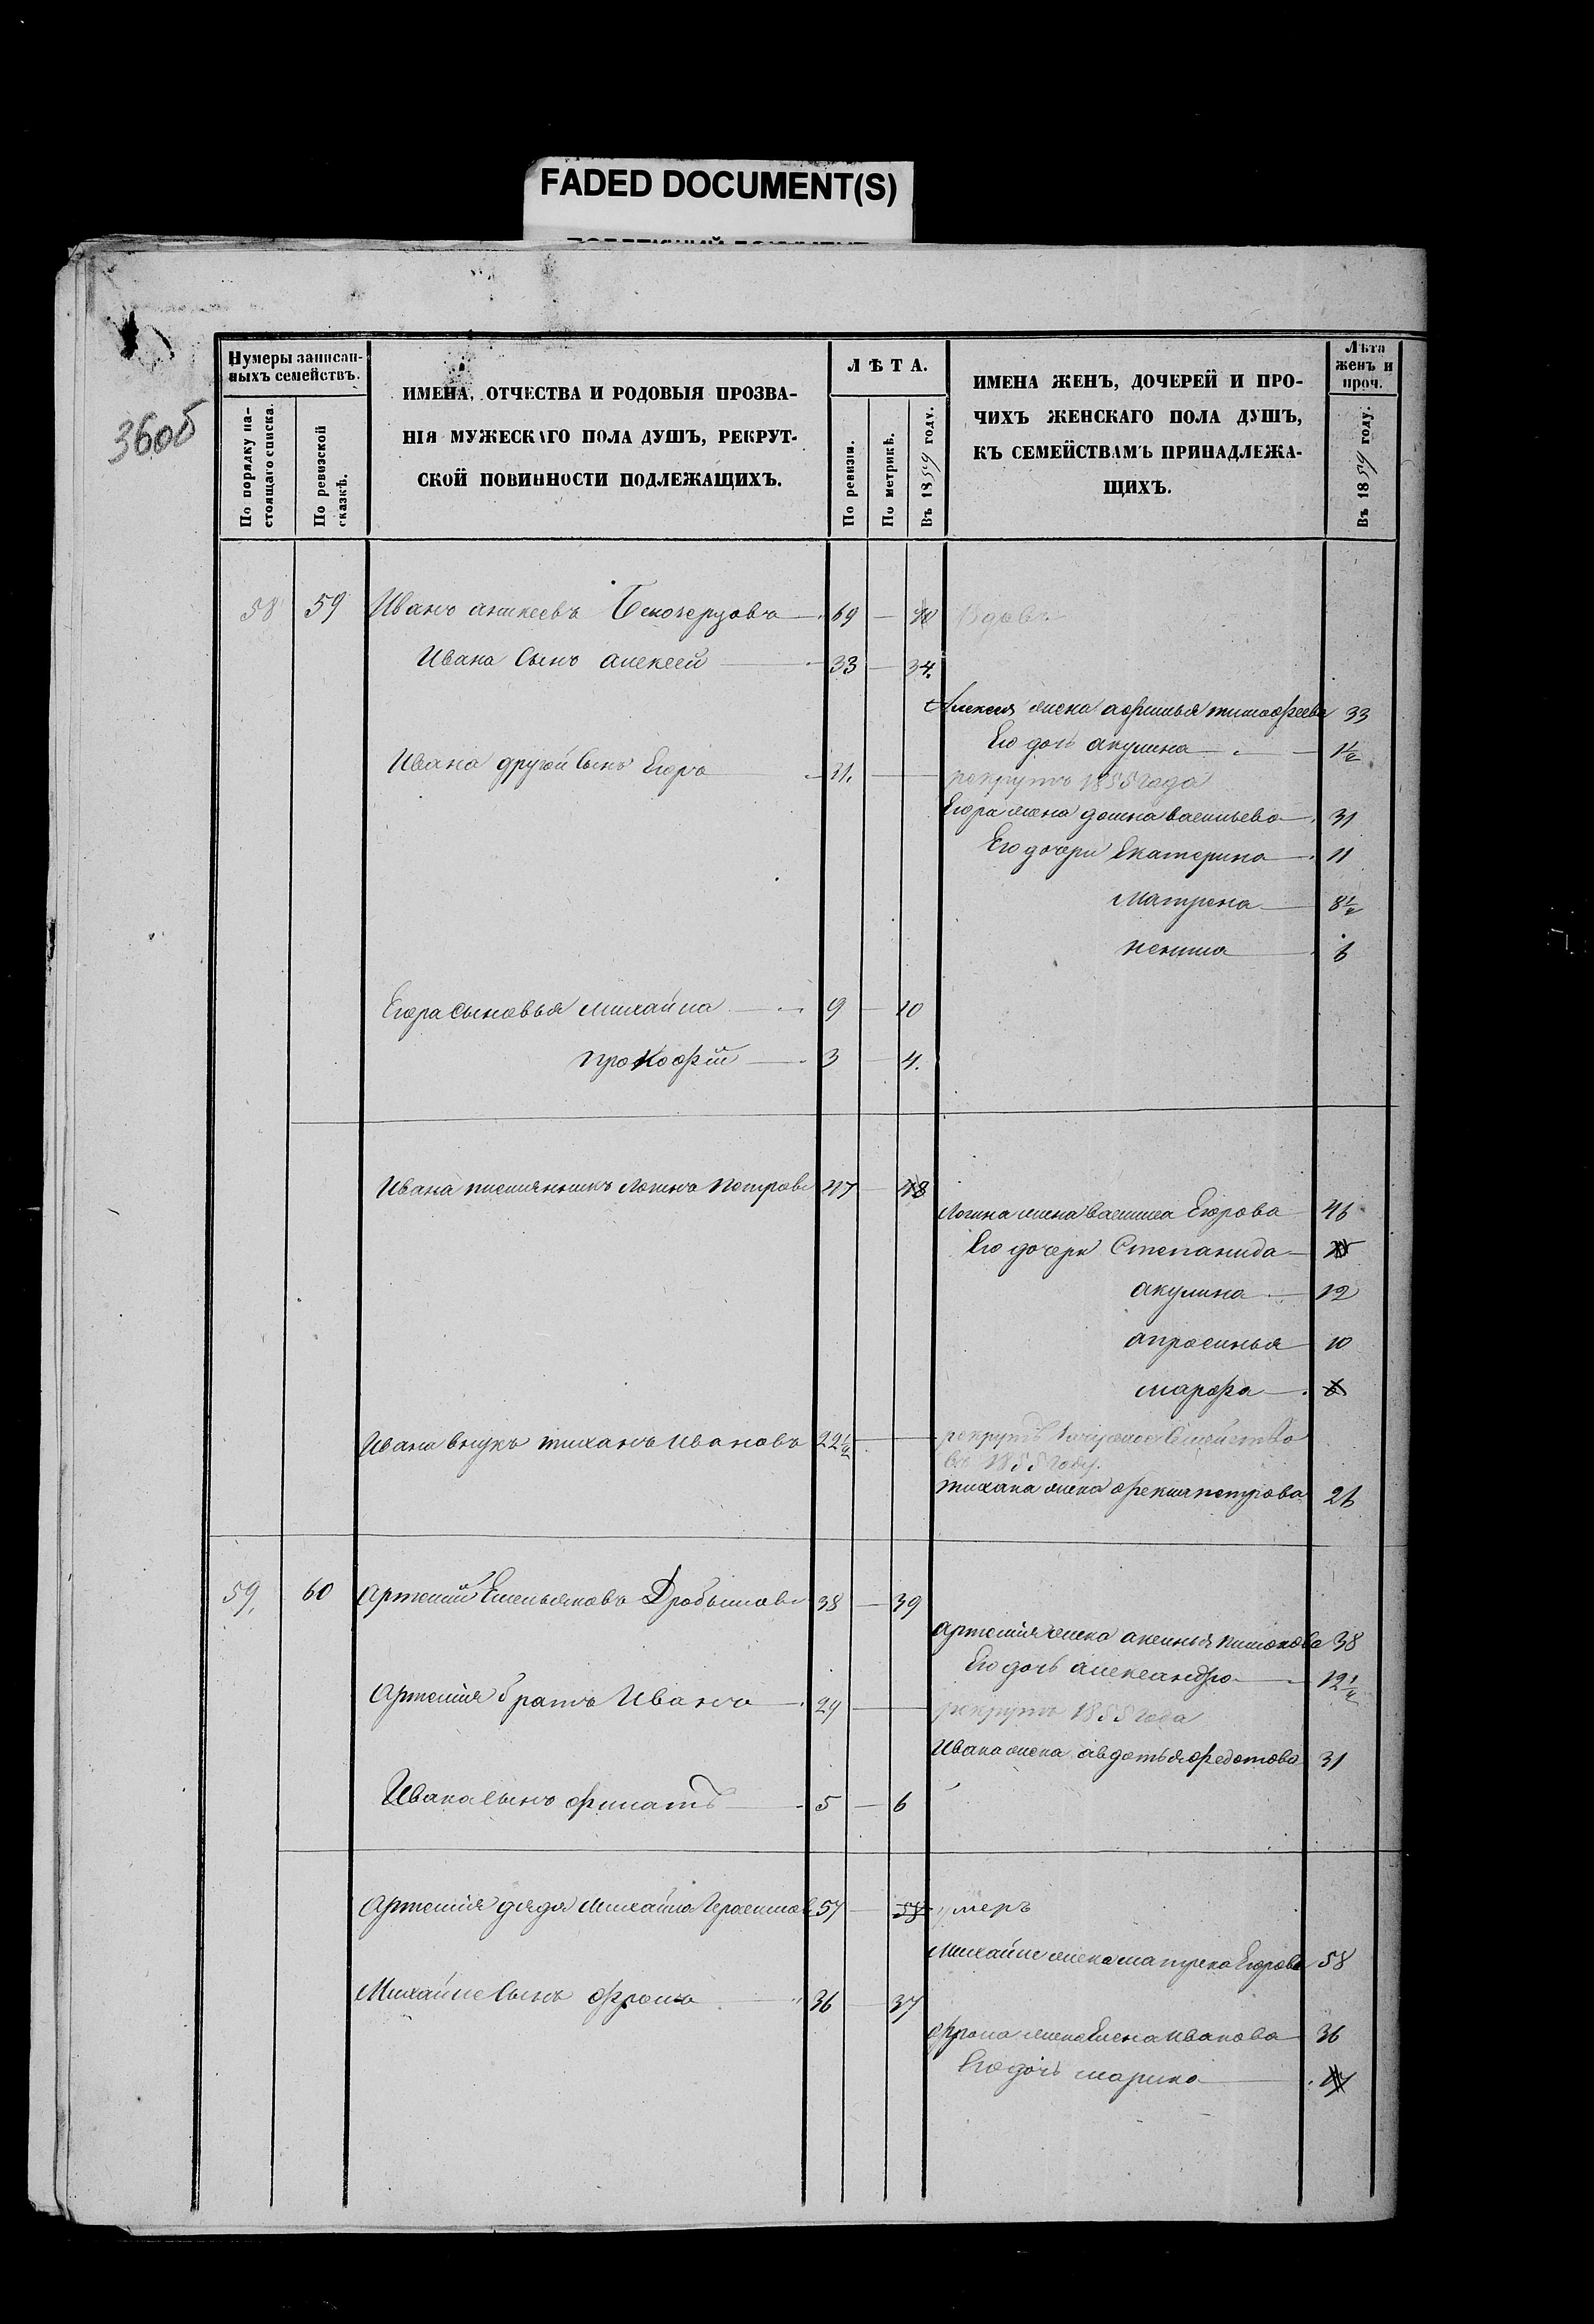 FADED DOCUMENT(S)
36об
Нумеры записан-
ныхъ семействъ.
По порядку на-
стоящаго списка.
По ревизской
сказкѣ.
ИМЕНА, ОТЧЕСТВА И РОДОВЫЯ ПРОЗВА-
НІЯ МУЖЕСКАГО ПОЛА ДУШЪ, РЕКРУТ-
СКОЙ ПОВИННОСТИ ПОДЛЕЖАЩИХЪ.
ЛѢТА.
По ревизіи.
По метрикѣ.
Въ 1859 году.
ИМЕНА ЖЕНЪ, ДОЧЕРЕЙ И ПРО-
ЧИХЪ ЖЕНСКАГО ПОЛА ДУШЪ,
КЪ СЕМЕЙСТВАМЪ ПРИНАДЛЕЖА-
ЩИХЪ.
Лѣта
женъ и
проч.
Въ 1859 году.
58 59 Иванъ аникеевъ 69 — 70 Вдовъ
Ивана Сынъ алексей — 33 — 34.
Алексея жена афимья тимофеева 33
Его дочь акулина — 1½
Ивана другой Сынъ Егоръ — 31. — рекрутъ 1855 года
Егора жена домна васильева — 31
Его дочери Екатерина — 11
Матрена — 8½
— 6
Егора Сыновья михайла — 9 — 10
прокофій — 3 — 4.
Ивана племянникъ логинъ петровъ 47 — 48
Логина жена василиса Егорова 46
Его дочери Степанида —
акулина — 12
апросинья 10
марфа — 6
Ивана внукъ тиханъ Ивановъ 22½ — рекрутъ
въ 1855 году.
тихана жена фекла петрова 26
59, 60 Артемій Емельяновъ 38 — 39
Артемія жена аксинья 38
Его дочь александра — 12½
Артемія братъ Иванъ — 29 — рекрутъ 1855 года
Ивана жена авдотья федотова 31
Ивана сынъ филатъ — 5 — 6
Артемія дядя Михайла Герасимовъ 57 — 58 умеръ
Михайлы жена матрена Егорова 58
Михайлы Сынъ фролъ — 36 — 37
фрола жена Елена Иванова 36
Его дочь марина — 17